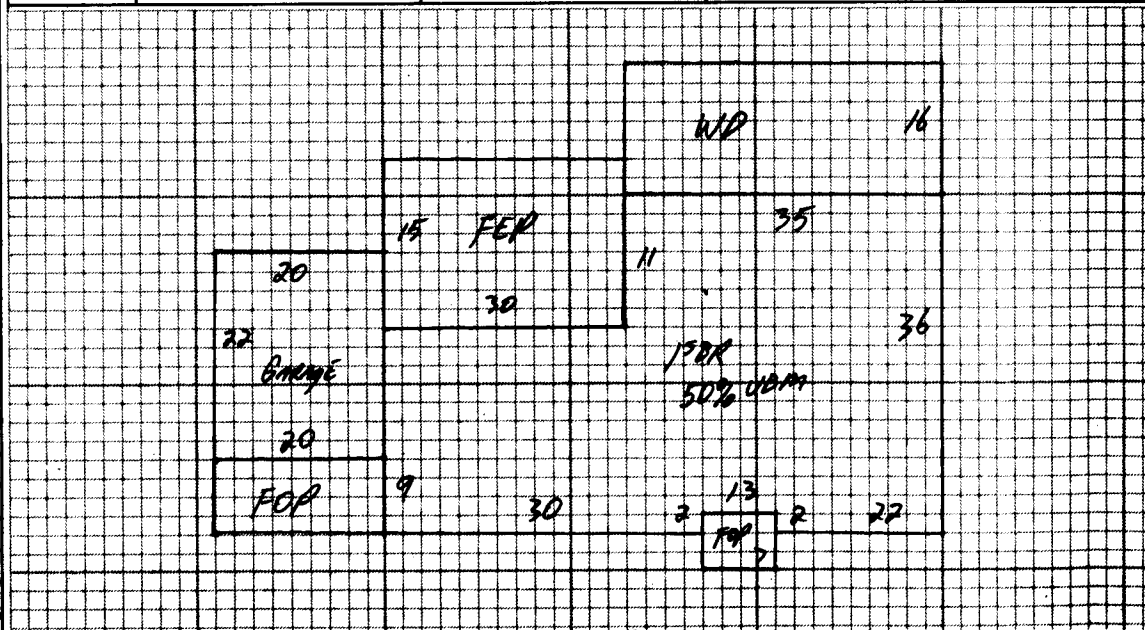 WD 16
35
15 FEP
11
20
30
36
22
Garage
1SBR
50% UBM
20
FOP 9
30
13
2 2 22
FOP
7